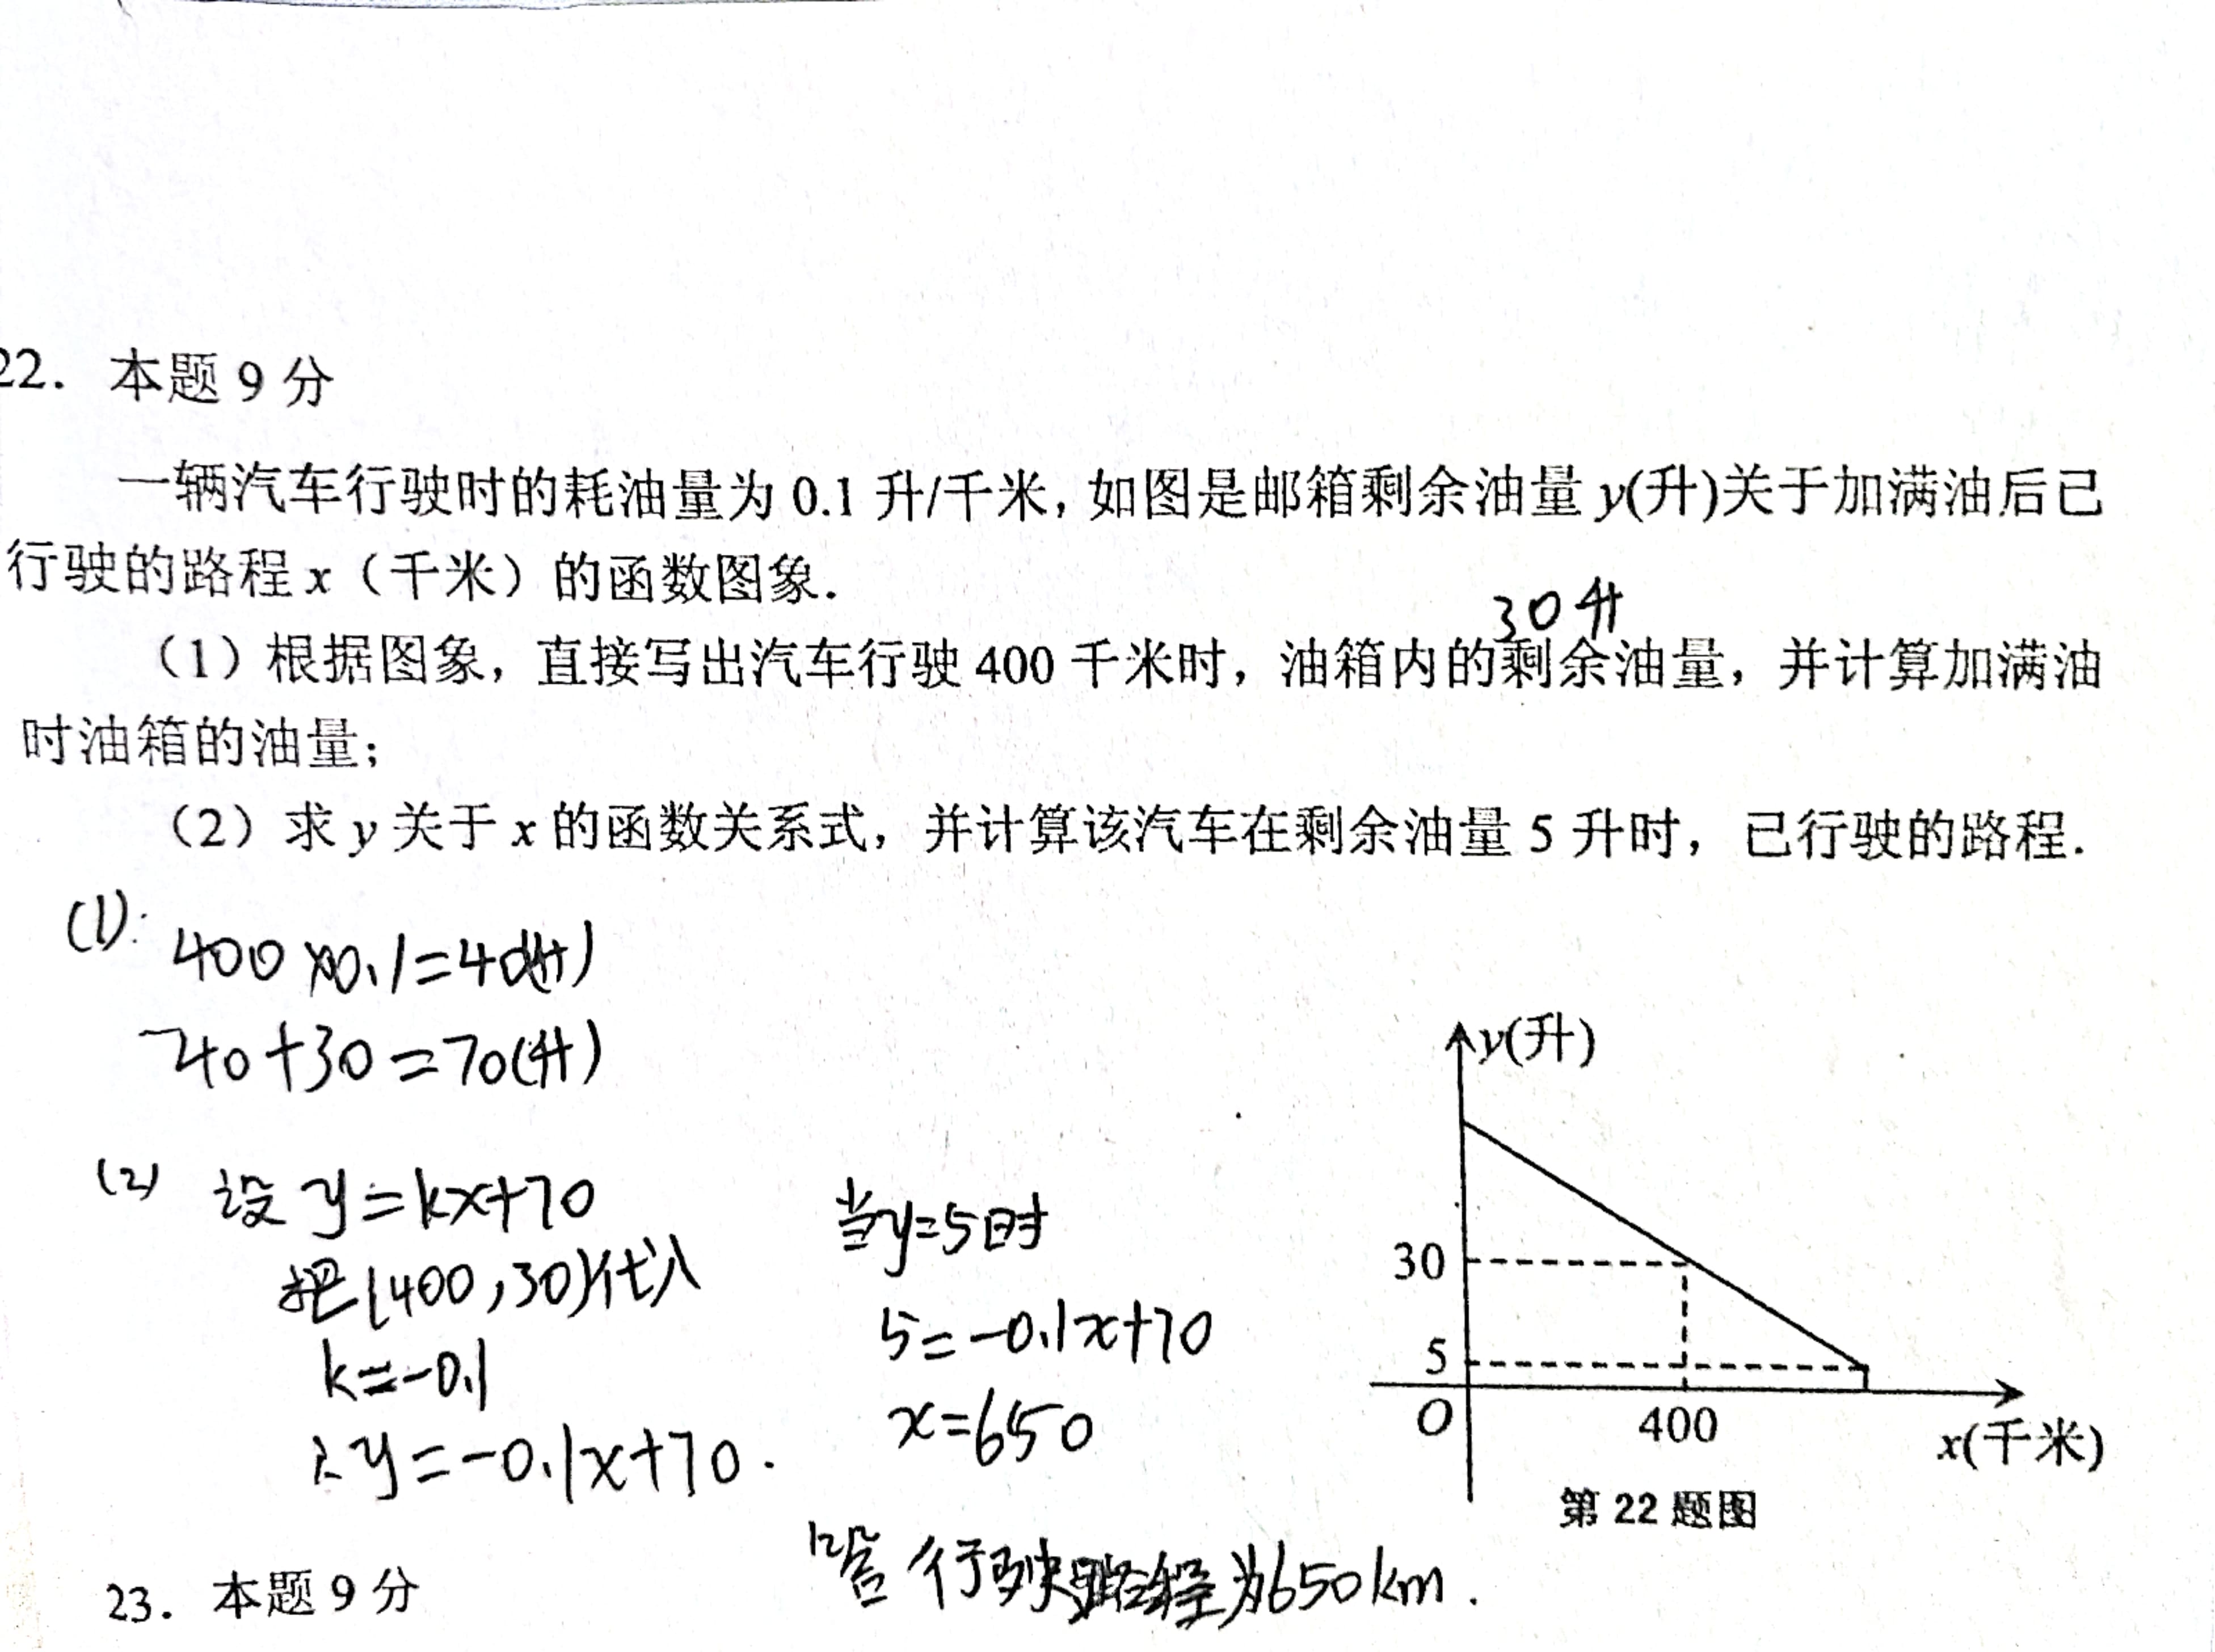 22. 本题 9 分
一辆汽车行驶时的耗油量为 0.1 升/千米, 如图是邮箱剩余油量 y(升)关于加满油后已
行驶的路程 x（千米）的函数图象.
30升
（1）根据图象，直接写出汽车行驶 400 千米时，油箱内的剩余油量，并计算加满油
时油箱的油量；
（2）求 y 关于 x 的函数关系式，并计算该汽车在剩余油量 5 升时，已行驶的路程.
(1):
400×0.1=40(升)
40+30=70(升)
(2) 设 y=kx+70
把(400,30)代入
k=-0.1
∴y=-0.1x+70.
当y=5时
5=-0.1x+70
x=650
答 行驶路程为650km.
y(升)
30
5
O
400
x(千米)
第 22 题图
23. 本题 9 分